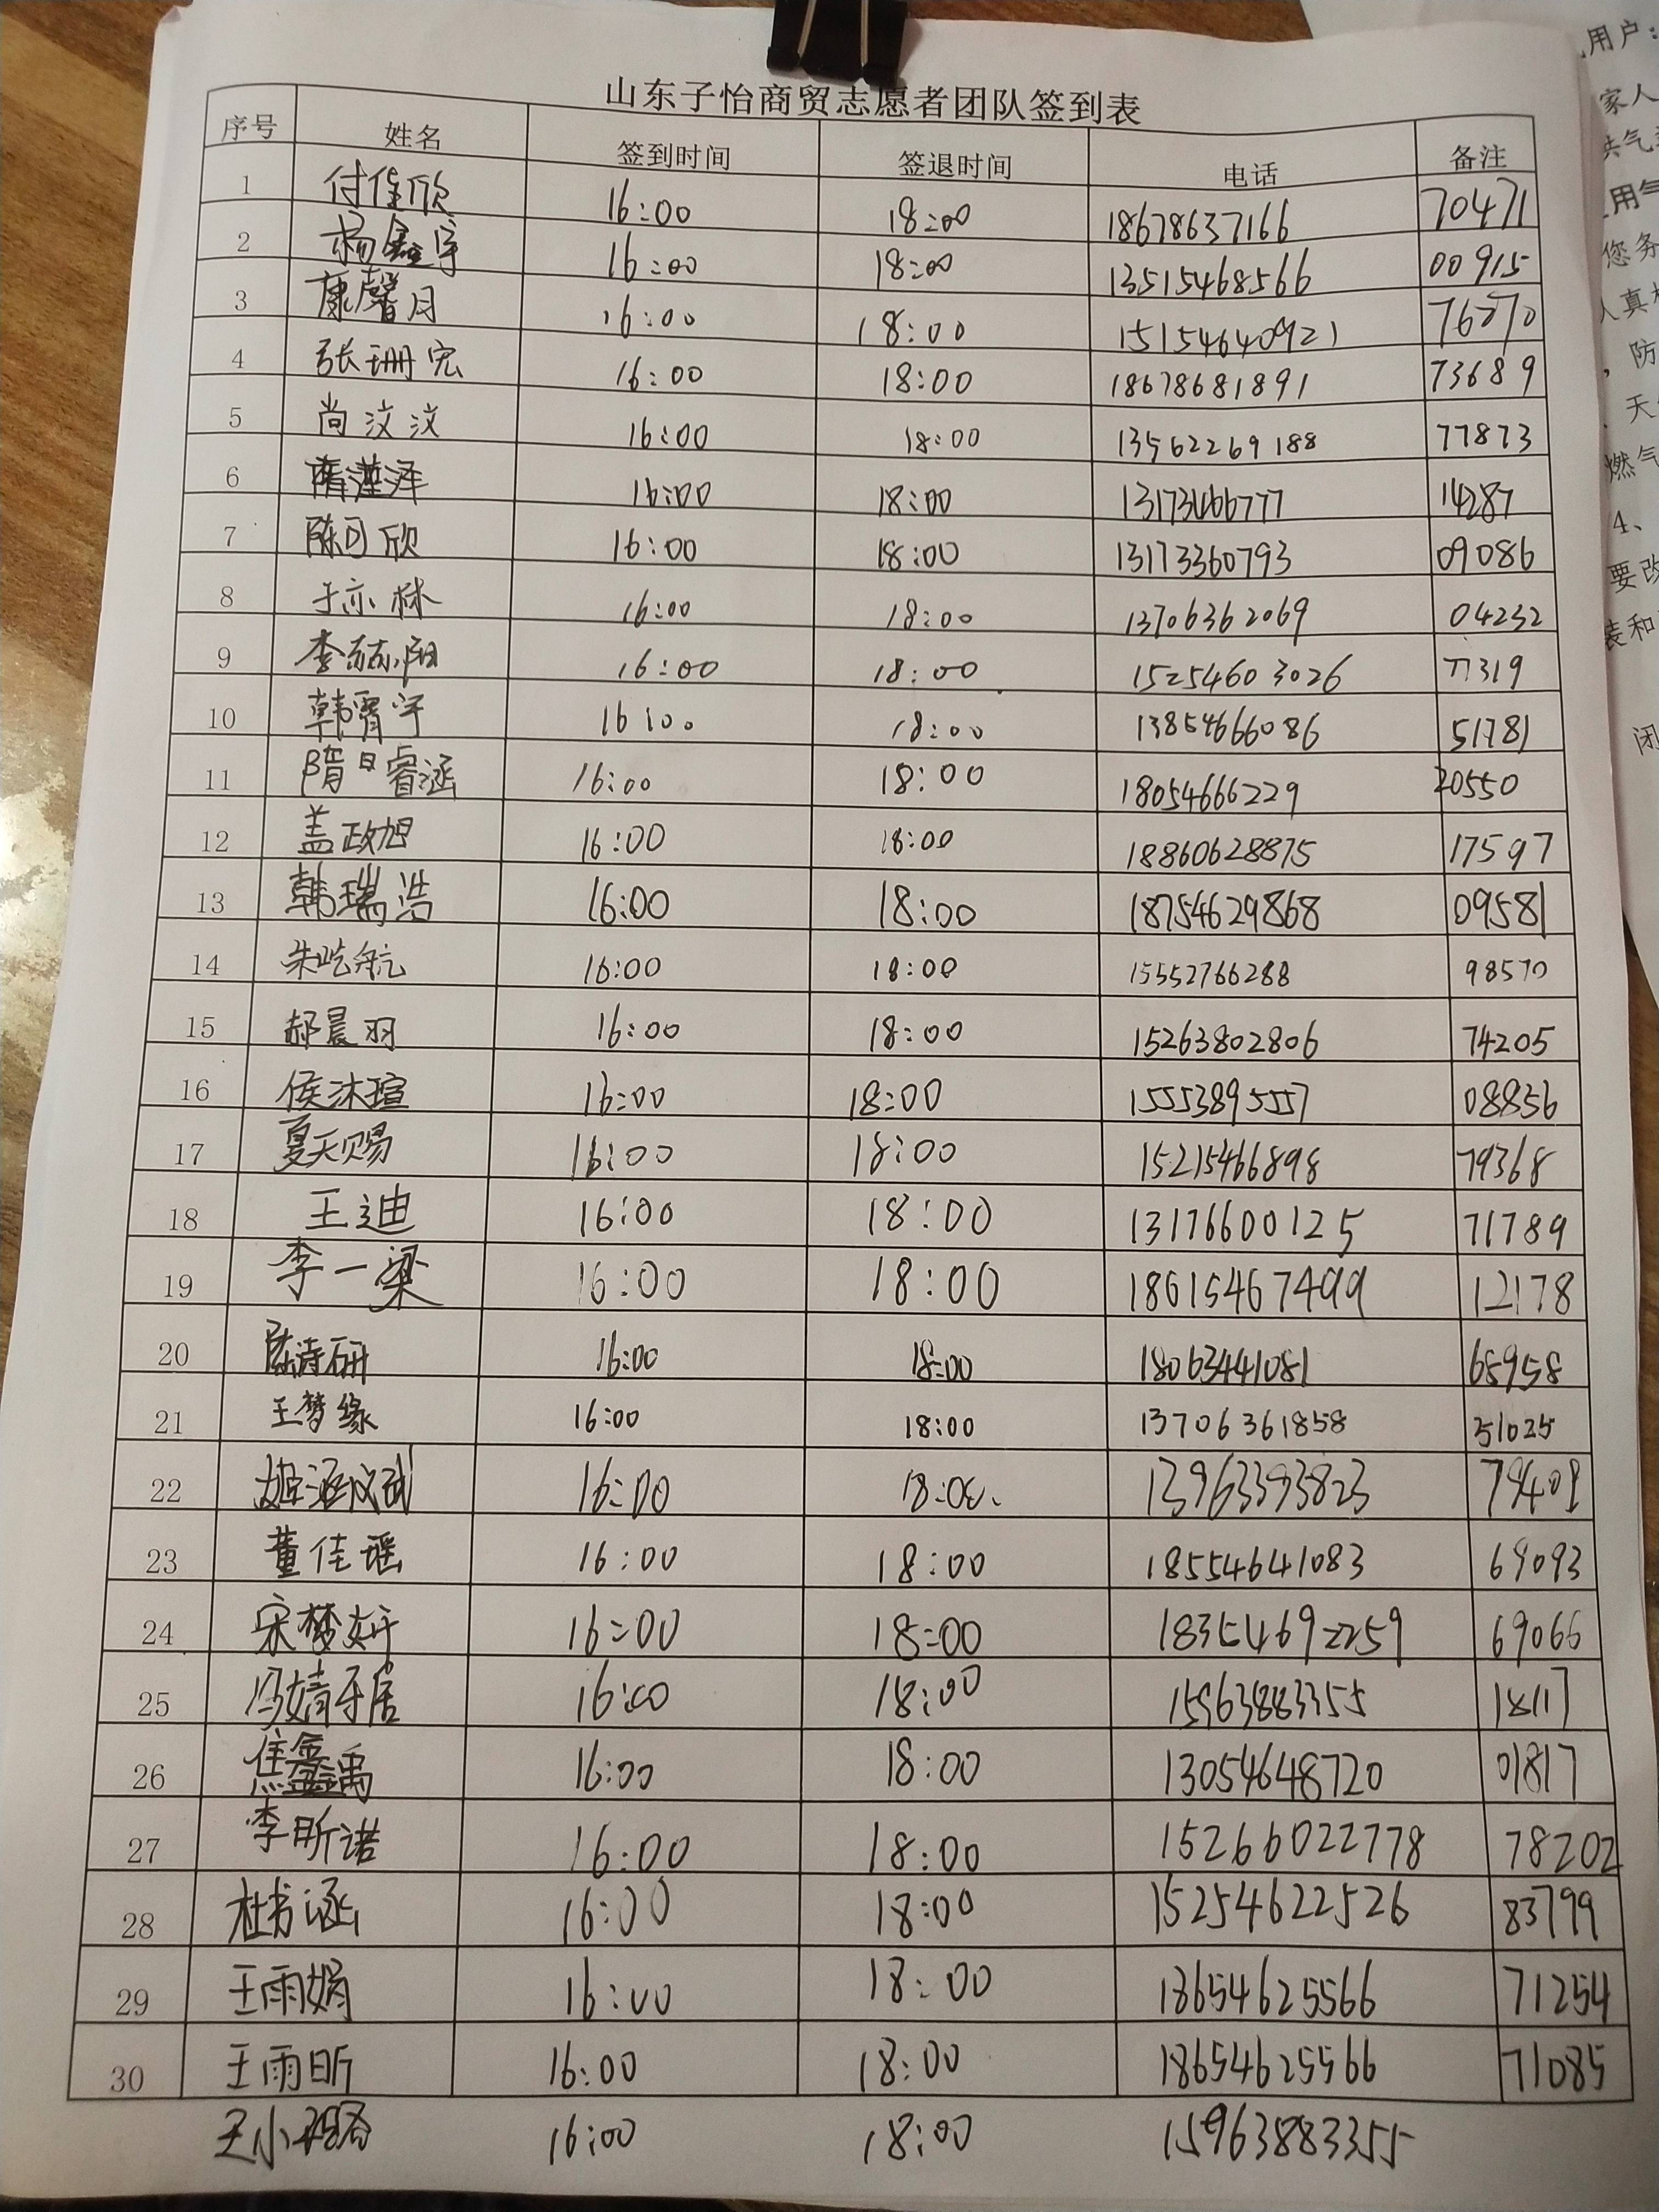 山东子怡商贸志愿者团队签到表
序号 姓名 签到时间 签退时间 电话 备注
1 付佳欣 16:00 18:00 18678637166 70471
2 杨鑫宇 16:00 18:00 13515468566 00915
3 康馨月 16:00 18:00 15154640921 76870
4 张珊宏 16:00 18:00 18678681891 73689
5 尚汶汶 16:00 18:00 13562269188 77873
6 16:00 18:00 14287
7 陈可欣 16:00 18:00 13173360793 09086
8 于亦林 16:00 18:00 13706362069 04232
9 李赫阳 16:00 18:00 15254603026 77319
10 韩霄宇 16:00 18:00 13854666086 51781
11 隋睿涵 16:00 18:00 18054666229 20550
12 盖政旭 16:00 18:00 18860628875 17597
13 韩瑞浩 16:00 18:00 18754629868 09581
14 朱屹航 16:00 18:00 15552766288 98570
15 郝晨羽 16:00 18:00 15263802806 74205
16 侯沐瑄 16:00 18:00 15553895557 08856
17 夏天赐 16:00 18:00 15215466898 79368
18 王迪 16:00 18:00 13176600125 71789
19 李一梁 16:00 18:00 18615467499 12178
20 陈诗研 16:00 18:00 18063441081 65958
21 王梦缘 16:00 18:00 13706361858 51025
22 16:00 18:00 13963393823
23 董佳瑶 16:00 18:00 18554641083 69093
24 宋梦妍 16:00 18:00 18354692259 69066
25 冯婧 16:00 18:00 15963883355
26 焦鑫禹 16:00 18:00 13054648720 01817
27 李昕诺 16:00 18:00 15266022778 78202
28 杜书涵 16:00 18:00 15254622526 83799
29 王雨娟 16:00 18:00 18654625566 71254
30 王雨昕 16:00 18:00 18654625566 71085
王小 16:00 18:00 15963883355
用户：
家人
供气
用气
您务
人真
，防
、天
燃气
4、
要改
装和
闭